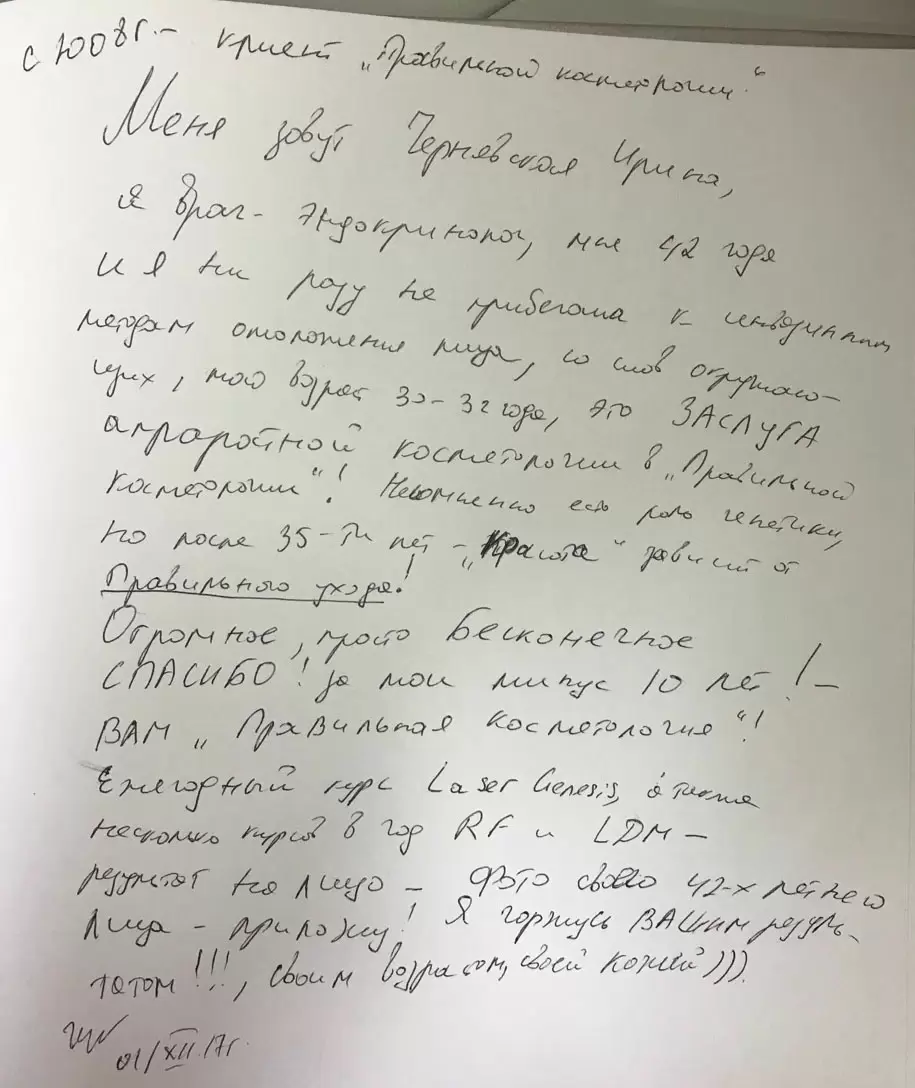 с 2008г.- клиент „Правильной косметологии."
Меня зовут Чернявская Ирина,
я врач- эндокринолог, мне 42 года
и я ни разу не прибегала к инвазивным
методам омоложения лица, со слов окружаю-
щих, мой возраст 30-32 года, это ЗАСЛУГА
аппаратной косметологии в „Правильной
косметологии"! Несомненно есть роль генетики,
но после 35-ти лет - „Красота" зависит от
Правильного ухода!
Огромное, просто бесконечное
СПАСИБО! за мои минус 10 лет! -
ВАМ „Правильная косметология"!
Ежегодный курс Laser Genesis, а также
несколько курсов в год RF и LDM -
результат на лицо - фото своего 42-х летнего
лица - приложу! Я горжусь ВАШим резуль-
татом!!!, своим возрастом, своей кожей))).
01/XII.17г.